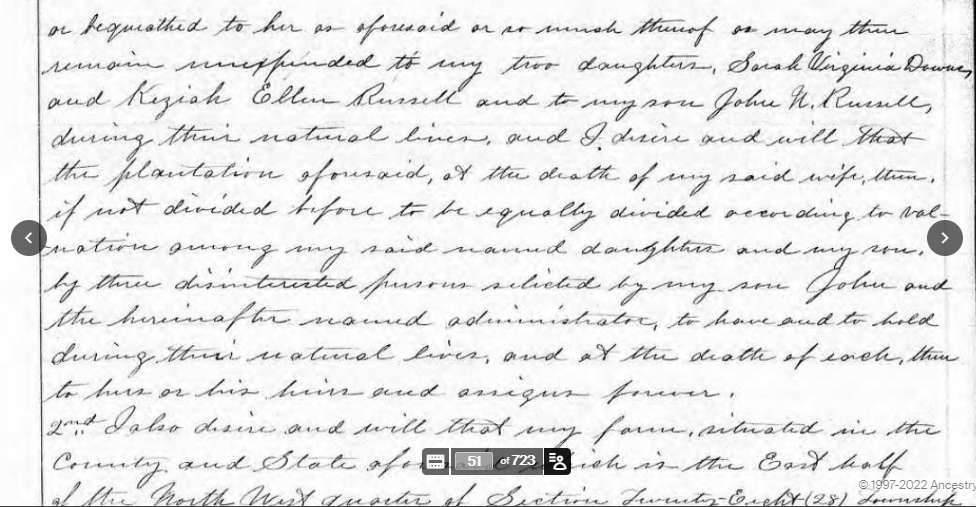 or bequeathed to her as aforesaid or so much thereof as may then
remain unexpended to my two daughters, Sarah Virginia Downs,
and Keziah Ellen Russell and to my son John N. Russell,
during their natural lives, and I desire and will that
the plantation aforesaid, at the death of my said wife, then,
if not divided before to be equally divided according to val-
uation among my said named daughters and my son,
by three disinterested persons selected by my son John and
the hereinafter named administrator, to have and to hold
during their natural lives, and at the death of each, then
to hers or his heirs and assigns forever.
2nd I also desire and will that my farm, situated in the
County and State which is the East half
51 of 723
of the North West quarter of Section Twenty-Eight (28) Township
© 1997-2022 Ancestry